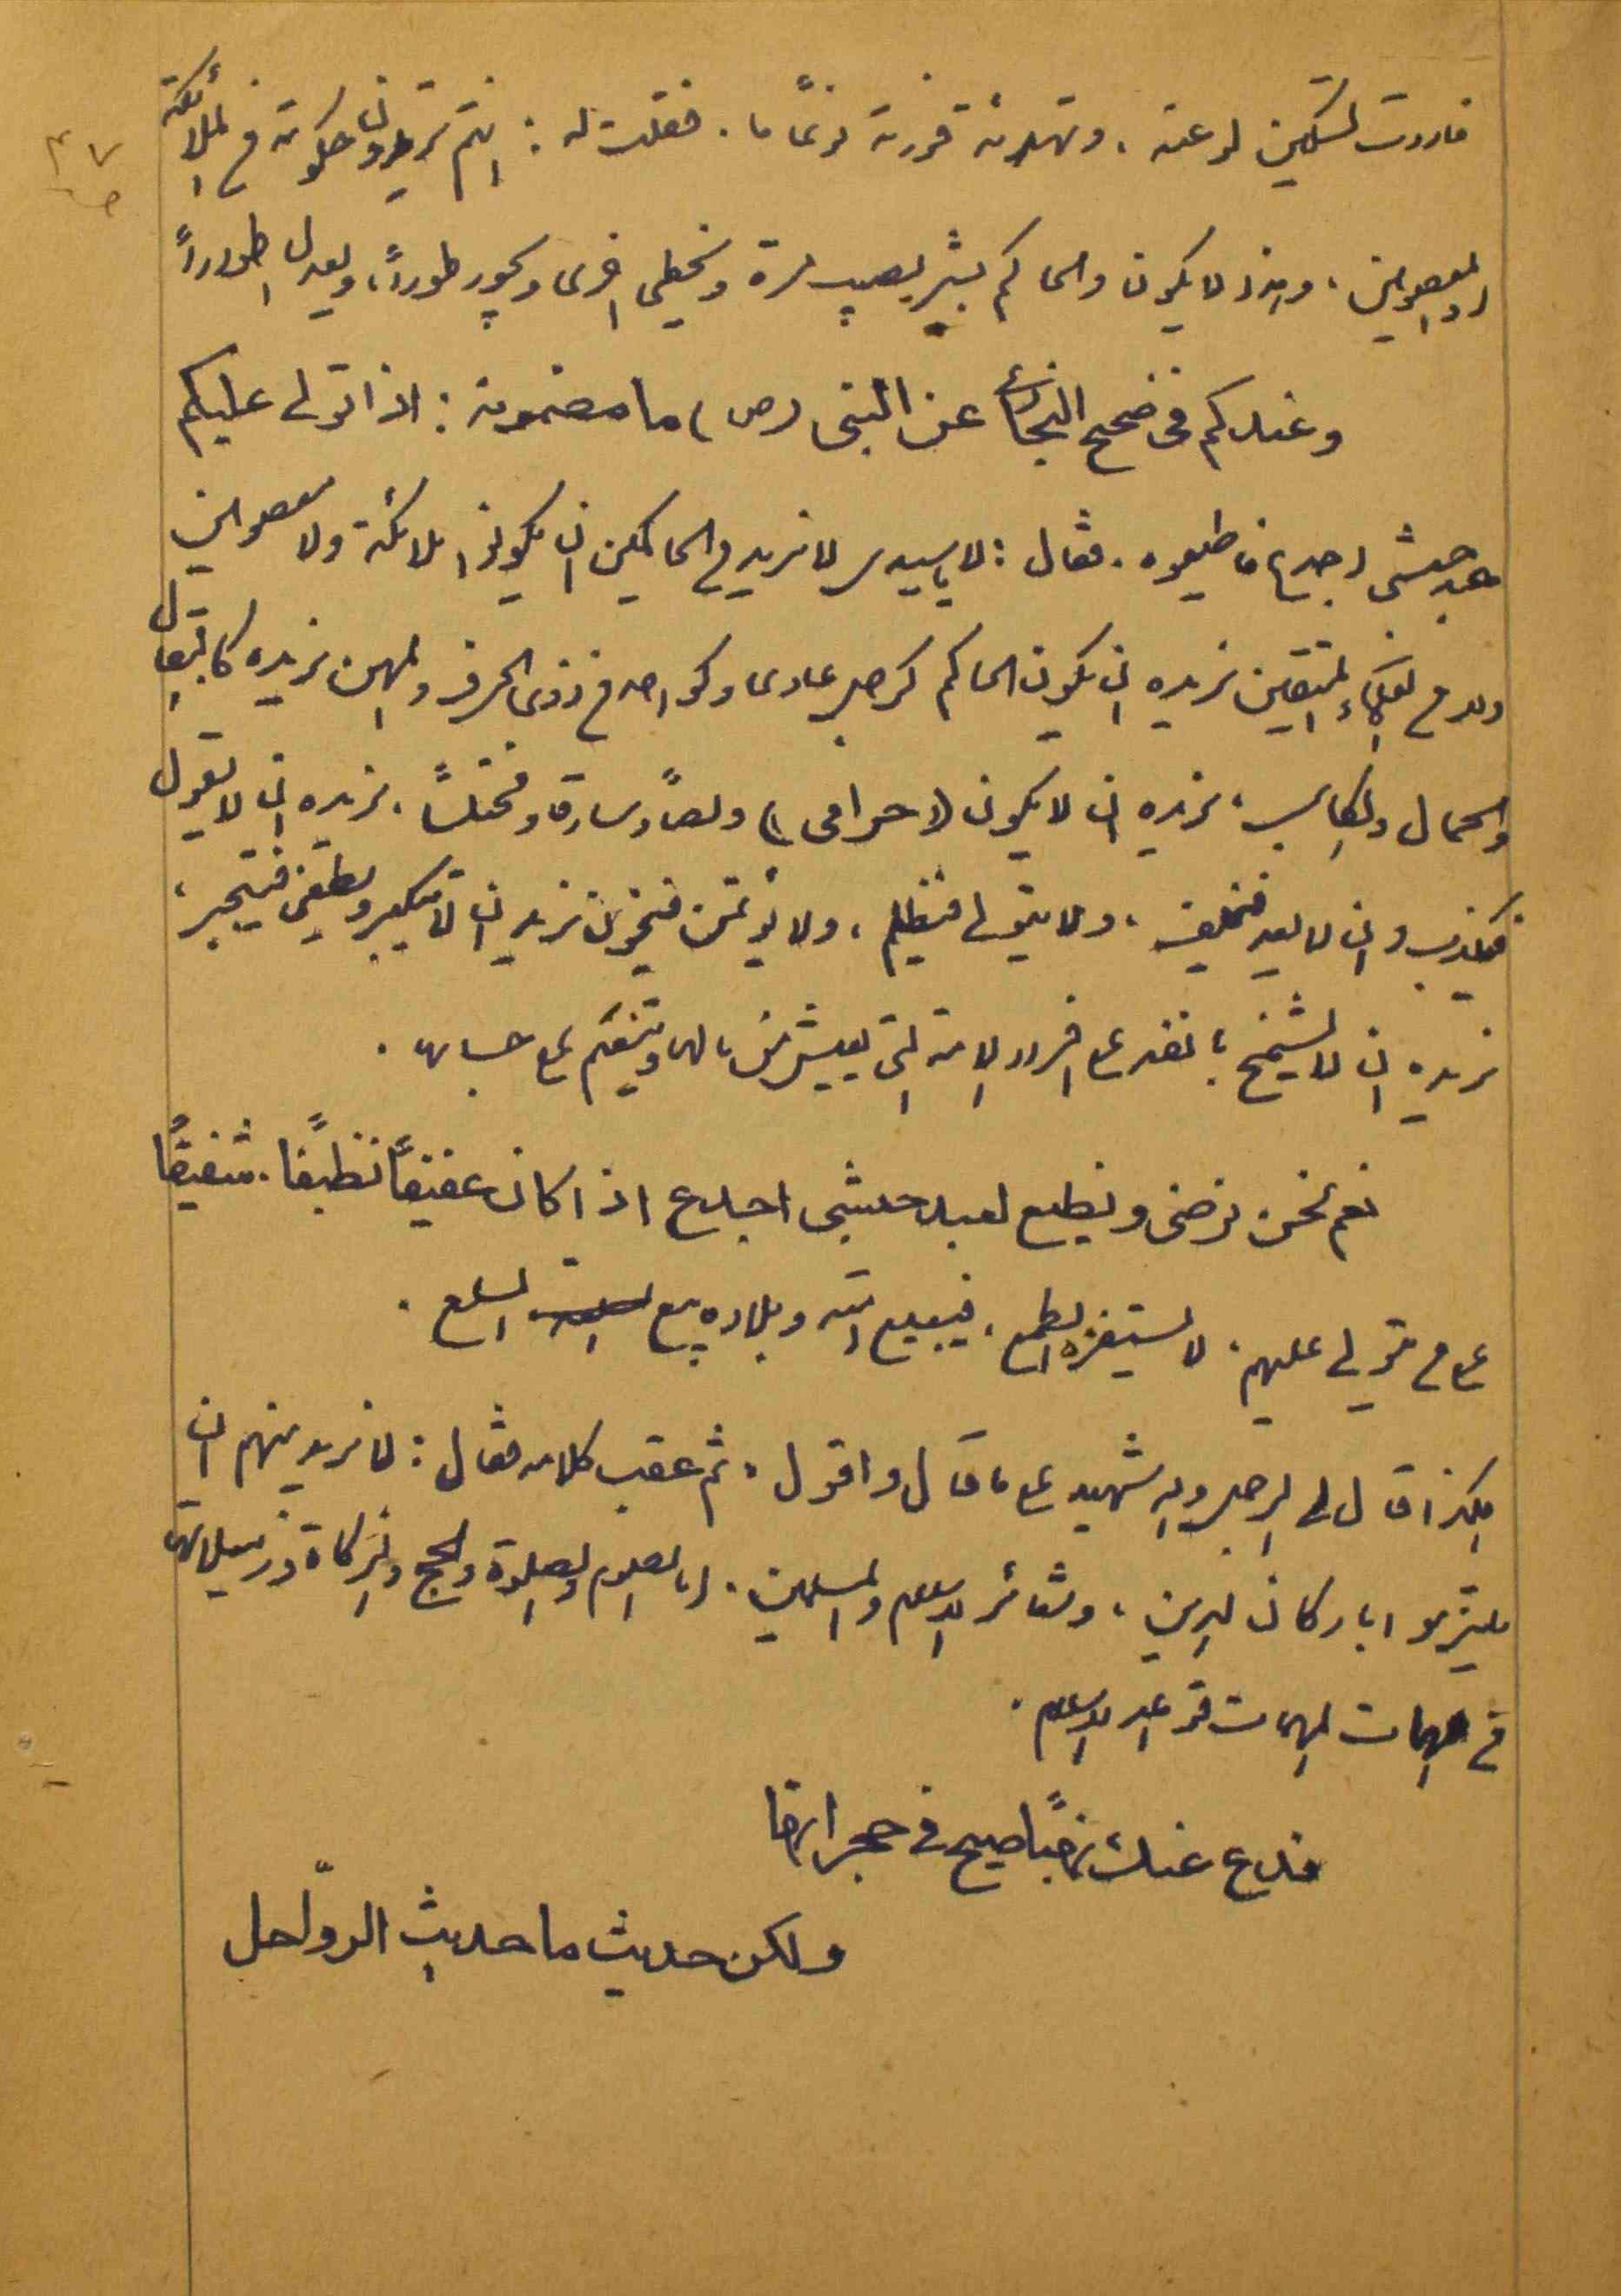 فاردت تسكين لوعته، وتهدئة فورته نوعًا ما. فقلت له: انتم تريدون حكومة من الملائكة
٤٧
او المعصومين، وهذا لا يكون والحاكم بشر يصيب مرة ويخطي اخرى ويجور طوراً، ويعدل اطواراً
وعندكم في صحيح البخاري عن النبي (ص) ما مضمونه: اذا تولى عليكم
عبد حبشي اجدع فاطيعوه. فقال: لا ياسيدي لا نريد من الحاكمين ان يكونوا ملائكة ولا معصومين
ولا من المتقين نريد ان يكون الحاكم كرجل عادي وكواحد من ذوي الحرف والمهن نريده كالبقال
والحمال والكاسب، نريده ان لا يكون (حرامي) ولصاً وسارقاً ومختلساً. نريده ان لا يقول
فيكذب وان لا يعد فيخلف، ولا يتولى فيظلم، ولا يؤتمن فيخون نريد ان لا يتكبر ويطغى فيتجبر،
نريده ان لا يشمخ بانفه على افراد الامة التي يعيش من مالها ويتنعم على حسابها.
نعم نحن نرضى ونطيع لعبد حبشي اجدع اذا كان عفيفًا نظيفًا. شفيقًا
على من تولى عليهم. لا يستفزه الطمع، فيبيع امته وبلاده بيع السلع.
هكذا قال لي الرجل والله شهيد على ما قال واقول، ثم عقب كلامه فقال: لا نريد منهم ان
يلتزموا باركان الدين، وشعائر الاسلام والمسلمين. اي الصوم والصلوة والحج والزكاة وزميلاتها
في المهمات قواعد الاسلام.
فدع عنك نهبًا صيح في حجراتها
ولكن حديث ما حديث الرواحل